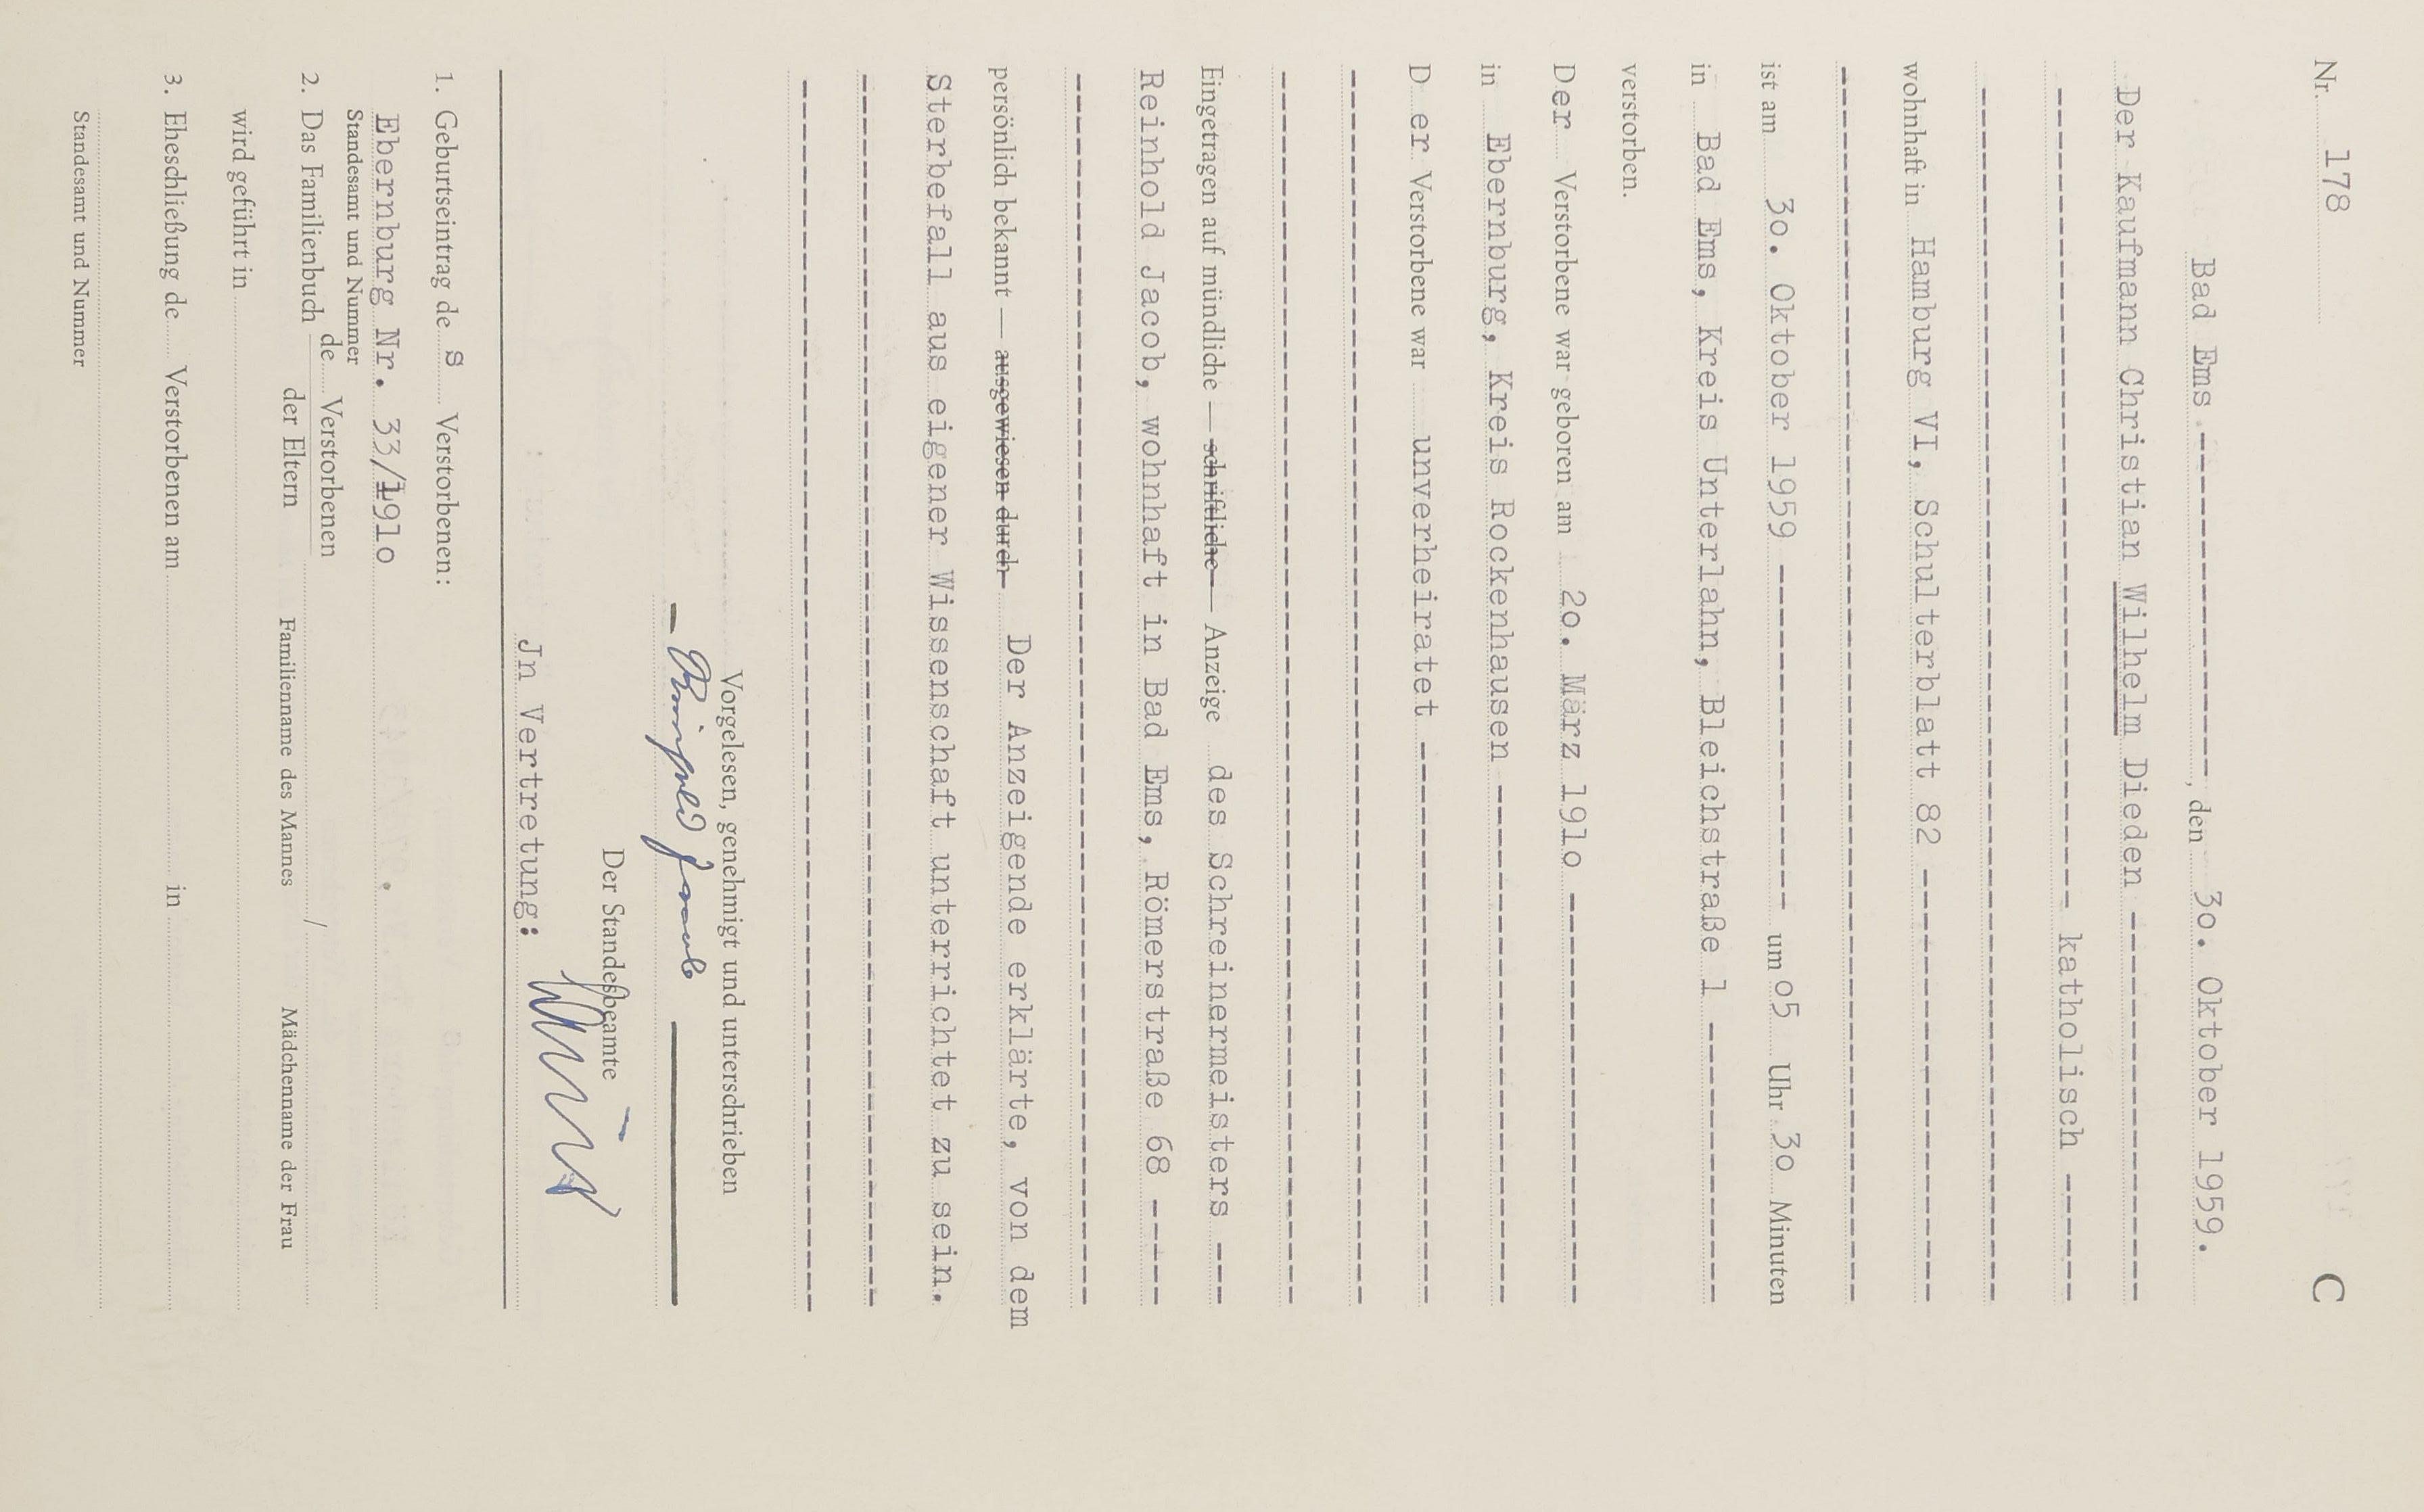 Nr. 178
C
Bad Ems ----------------------, den 3o. Oktober 1959.
Der Kaufmann Christian Wilhelm Dieden -------------------------
---------------------------------------------------- katholisch --------
--------------------------------------------------------------------------------
wohnhaft in Hamburg VI, Schulterblatt 82 ---------------------------
--------------------------------------------------------------------------------
ist am 3o. Oktober 1959 ---------------------- um o5 Uhr 3o Minuten
in Bad Ems, Kreis Unterlahn, Bleichstraße 1 ------------------
verstorben.
Der Verstorbene war geboren am 2o. März 191o --------------------------
in Ebernburg, Kreis Rockenhausen ---------------------------------
D er Verstorbene war unverheiratet -----------------------------------
--------------------------------------------------------------------------------
--------------------------------------------------------------------------------
Eingetragen auf mündliche — schriftliche — Anzeige des Schreinermeisters ----
Reinhold Jacob, wohnhaft in Bad Ems, Römerstraße 68 -------
--------------------------------------------------------------------------------
persönlich bekannt — ausgewiesen durch Der Anzeigende erklärte, von dem
Sterbefall aus eigener Wissenschaft unterrichtet zu sein.
--------------------------------------------------------------------------------
--------------------------------------------------------------------------------
Vorgelesen, genehmigt und unterschrieben
Reinhold Jacob
Der Standesbeamte
Jn Vertretung:
1. Geburtseintrag de s Verstorbenen:
Ebernburg Nr. 33/191o
Standesamt und Nummer
2. Das Familienbuch de Verstorbenen
der Eltern
/
Familienname des Mannes Mädchenname der Frau
wird geführt in
3. Eheschließung de Verstorbenen am in
Standesamt und Nummer